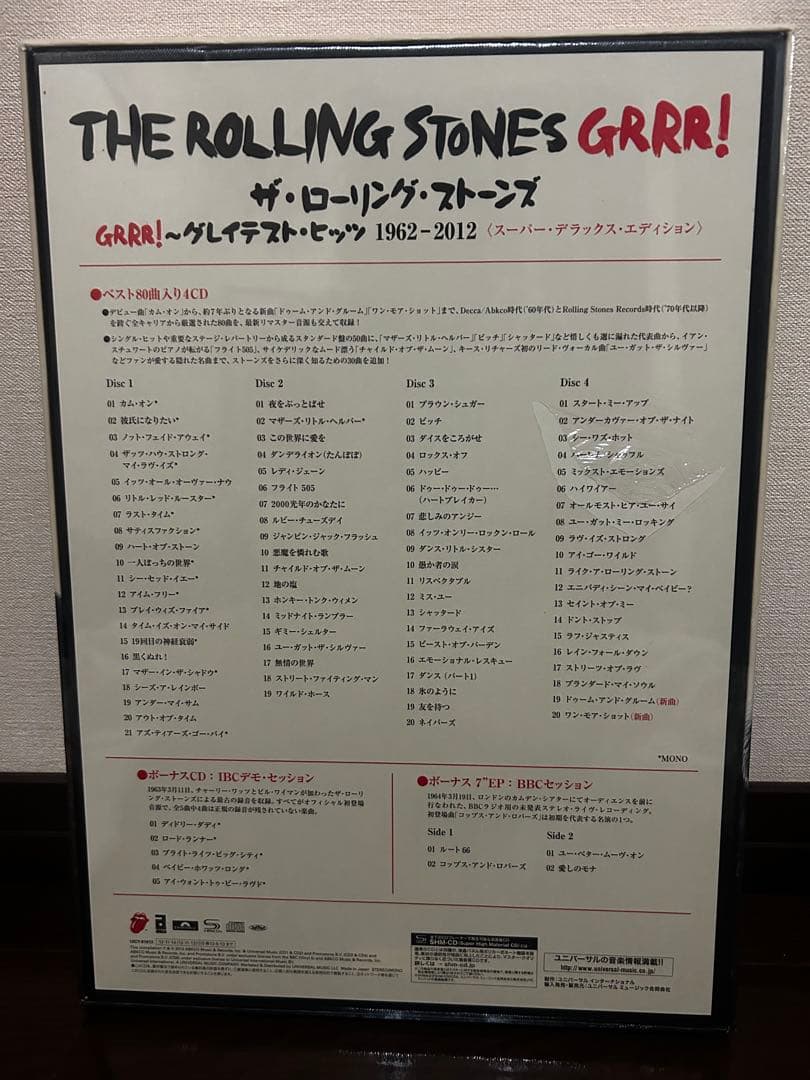 THE ROLLING STONES GRRR!
ザ・ローリング・ストーンズ
GRRR!～グレイテスト・ヒッツ 1962-2012〈スーパー・デラックス・エディション〉
●ベスト80曲入り4CD
●デビュー曲「カム・オン」から、約7年ぶりとなる新曲「ドゥーム・アンド・グルーム」「ワン・モア・ショット」まで、Decca/Abkco時代('60年代)とRolling Stones Records時代('70年代以降)
を紡ぐ全キャリアから厳選された80曲を、最新リマスター音源も交えて収録!
●シングル・ヒットや重要なステージ・レパートリーから成るスタンダード盤の50曲に、「マザーズ・リトル・ヘルパー」「ビッチ」「シャッタード」など惜しくも選に漏れた代表曲から、イアン・
スチュワートのピアノが転がる「フライト505」、サイケデリックなムード漂う「チャイルド・オブ・ザ・ムーン」、キース・リチャーズ初のリード・ヴォーカル曲「ユー・ガット・ザ・シルヴァー」
などファンが愛する隠れた名曲まで、ストーンズをさらに深く知るための30曲を追加!
Disc 1
01 カム・オン*
02 彼氏になりたい*
03 ノット・フェイド・アウェイ*
04 ザッツ・ハウ・ストロング・
マイ・ラヴ・イズ*
05 イッツ・オール・オーヴァー・ナウ
06 リトル・レッド・ルースター*
07 ラスト・タイム*
08 サティスファクション*
09 ハート・オブ・ストーン
10 一人ぼっちの世界*
11 シー・セッド・イエー*
12 アイム・フリー*
13 プレイ・ウィズ・ファイア*
14 タイム・イズ・オン・マイ・サイド
15 19回目の神経衰弱*
16 黒くぬれ!
17 マザー・イン・ザ・シャドウ*
18 シーズ・ア・レインボー
19 アンダー・マイ・サム
20 アウト・オブ・タイム
21 アズ・ティアーズ・ゴー・バイ*
Disc 2
01 夜をぶっとばせ
02 マザーズ・リトル・ヘルパー*
03 この世界に愛を
04 ダンデライオン(たんぽぽ)
05 レディ・ジェーン
06 フライト 505
07 2000光年のかなたに
08 ルビー・チューズデイ
09 ジャンピン・ジャック・フラッシュ
10 悪魔を憐れむ歌
11 チャイルド・オブ・ザ・ムーン
12 地の塩
13 ホンキー・トンク・ウィメン
14 ミッドナイト・ランブラー
15 ギミー・シェルター
16 ユー・ガット・ザ・シルヴァー
17 無情の世界
18 ストリート・ファイティング・マン
19 ワイルド・ホース
Disc 3
01 ブラウン・シュガー
02 ビッチ
03 ダイスをころがせ
04 ロックス・オフ
05 ハッピー
06 ドゥー・ドゥー・ドゥー…
(ハートブレイカー)
07 悲しみのアンジー
08 イッツ・オンリー・ロックン・ロール
09 ダンス・リトル・シスター
10 愚か者の涙
11 リスペクタブル
12 ミス・ユー
13 シャッタード
14 ファーラウェイ・アイズ
15 ビースト・オブ・バーデン
16 エモーショナル・レスキュー
17 ダンス(パート1)
18 氷のように
19 友を待つ
20 ネイバーズ
Disc 4
01 スタート・ミー・アップ
02 アンダーカヴァー・オブ・ザ・ナイト
03 シー・ワズ・ホット
04 ハーレム・シャッフル
05 ミックスト・エモーションズ
06 ハイワイアー
07 オールモスト・ヒア・ユー・サイ
08 ユー・ガット・ミー・ロッキング
09 ラヴ・イズ・ストロング
10 アイ・ゴー・ワイルド
11 ライク・ア・ローリング・ストーン
12 エニバディ・シーン・マイ・ベイビー?
13 セイント・オブ・ミー
14 ドント・ストップ
15 ラフ・ジャスティス
16 レイン・フォール・ダウン
17 ストリーツ・オブ・ラヴ
18 プランダード・マイ・ソウル
19 ドゥーム・アンド・グルーム(新曲)
20 ワン・モア・ショット(新曲)
*MONO
●ボーナスCD：IBCデモ・セッション
1963年3月11日、チャーリー・ワッツとビル・ワイマンが加わったザ・ローリ
ング・ストーンズによる最古の録音を収録。すべてがオフィシャル初登場
音源で、全5曲中4曲は正規の録音が残されていない楽曲。
01 ディドリー・ダディ*
02 ロード・ランナー*
03 ブライト・ライツ・ビッグ・シティ*
04 ベイビー・ホワッツ・ロング*
05 アイ・ウォント・トゥ・ビー・ラヴド*
●ボーナス 7"EP：BBCセッション
1964年3月19日、ロンドンのカムデン・シアターにてオーディエンスを前に
行なわれた、BBCラジオ用の未発表ステレオ・ライヴ・レコーディング。
初登場曲「コップス・アンド・ロバーズ」は初期を代表する名演の1つ。
Side 1
01 ルート66
02 コップス・アンド・ロバーズ
Side 2
01 ユー・ベター・ムーヴ・オン
02 愛しのモナ
SHM-CD
(Super High Material CD)
ユニバーサルの音楽情報満載!!
http://www.universal-music.co.jp/
制作：ユニバーサル インターナショナル
輸入発売・販売元：ユニバーサル ミュージック合同会社